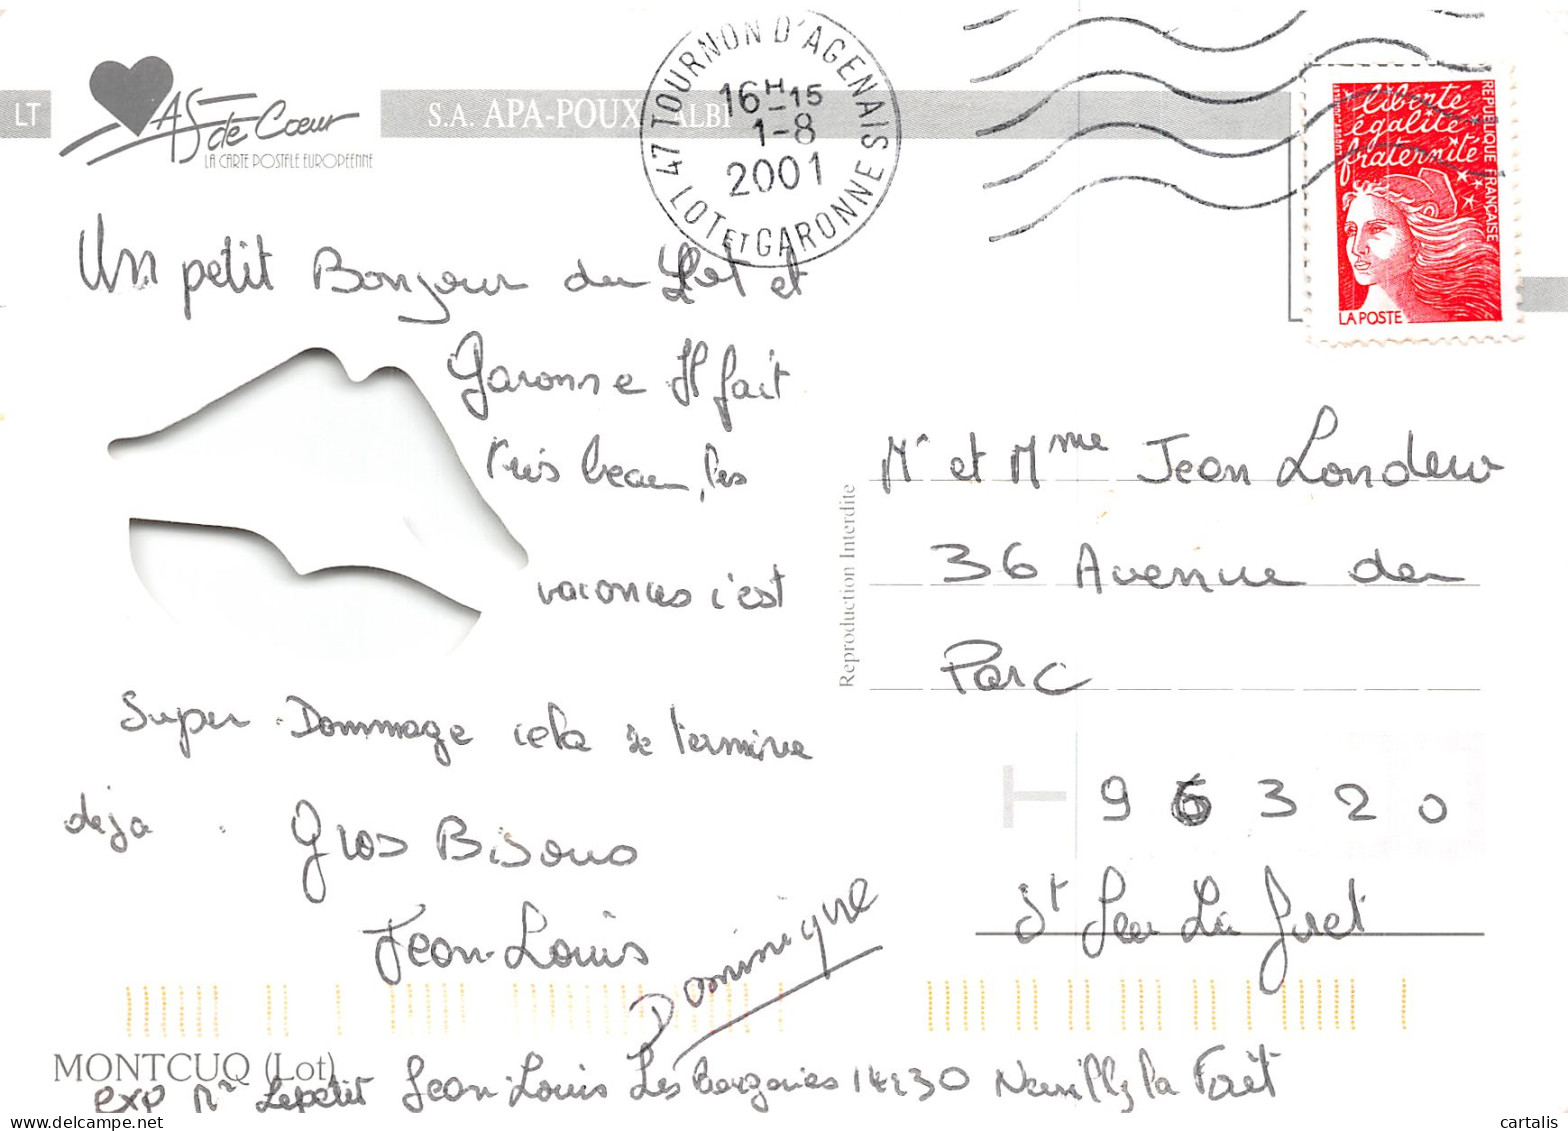 LT
As de Coeur
LA CARTE POSTALE EUROPEENNE
S.A. APA-POUX ALBI
47 TOURNON D'AGENAIS
16H-15
1-8
2001
LOT ET GARONNE
liberté
égalité
fraternité
REPUBLIQUE FRANÇAISE
LA POSTE
Un petit Bonjour du Lot et
Garonne Il fait
très beau, les
vacances c'est
Super. Dommage cela se termine
déja.
Gros Bisous
Jean-Louis
Dominique
Reproduction Interdite
Mr et Mme Jean
36 Avenue du
Parc
T 9 5 3 2 0
St Leu La Foret
MONTCUQ (Lot)
exp Mr Lepetit Jean-Louis Les Bergeries 14230 Neuilly la Forêt
delcampe.net
cartalis